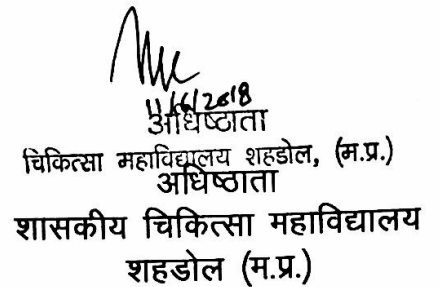 11/6/2018
अधिष्ठाता
चिकित्सा महाविद्यालय शहडोल, (म.प्र.)
अधिष्ठाता
शासकीय चिकित्सा महाविद्यालय
शहडोल (म.प्र.)